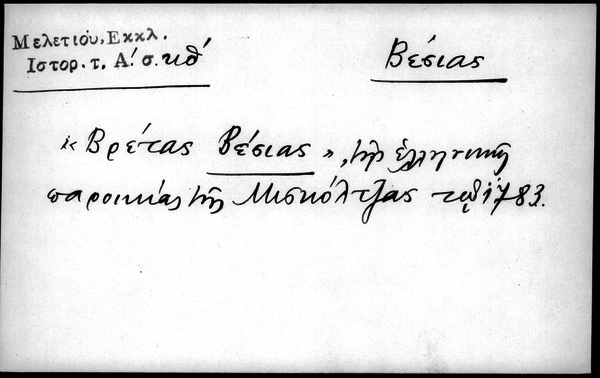 Μελετίου, Εκκλ.
Ιστορ. τ. Α΄. σ. κθ΄
Βέσιας
«Βρέτας Βέσιας», τῆς ἑλληνικῆς
παροικίας τῆς Μισκόλτζας τῷ 1783.